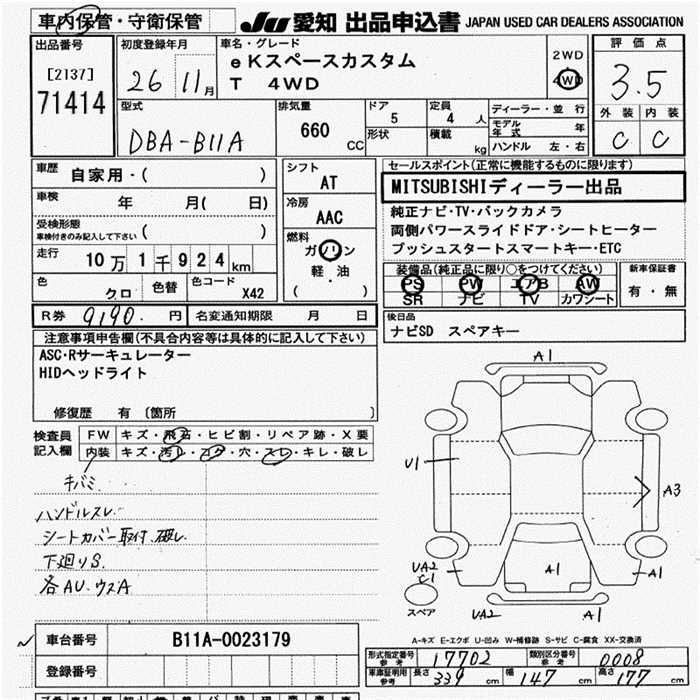 車内保管・守衛保管
JU 愛知 出品申込書 JAPAN USED CAR DEALERS ASSOCIATION
出品番号
[2137]
71414
初度登録年月
26 11月
車名・グレード
eKスペースカスタム
T 4WD
2WD
4WD
評価点
3.5
外装 内装
C C
型式
DBA-B11A
排気量
660 cc
ドア
5
形状
定員
4 人
積載
kg
ディーラー・並行
モデル年式 年
ハンドル 左・右
車歴
自家用・( )
車検
年 月( 日)
受検形態
車検付きのみ記入して下さい ( )
走行
10万1千924km
色
クロ
色替
色コード
X42
シフト
AT
冷房
AAC
燃料
ガソリン
軽・油
( )
セールスポイント(正常に機能するものに限ります)
MITSUBISHIディーラー出品
純正ナビ・TV・バックカメラ
両側パワースライドドア・シートヒーター
プッシュスタートスマートキー・ETC
装備品(純正品に限り○をつけてください)
PS PW エアB AW
SR ナビ TV カワシート
新車保証書
有・無
R券 9190. 円
名変通知期限 月 日
後日品
ナビSD スペアキー
注意事項申告欄(不具合内容等は具体的に記入して下さい)
ASC・Rサーキュレーター
HIDヘッドライト
修復歴 有 〔箇所 〕
検査員記入欄
FW キズ・飛石・ヒビ割・リペア跡・X要
内装 キズ・汚レ・コゲ・穴・スレ・キレ・破レ
キバミ
ハンドルスレ
シートカバー取付.破レ
下廻りS
各AU.ウスA
A1
U1
A3
UA2
C1
A1
A1
スペア
UA2
A1
A-キズ E-エクボ U-凹み W-補修跡 S-サビ C-腐食 XX-交換済
車台番号
B11A-0023179
登録番号
形式指定番号 参考 17702
類別区分番号 参考 0008
車庫証明用 参考 長さ 339 cm 幅 147 cm 高さ 177 cm